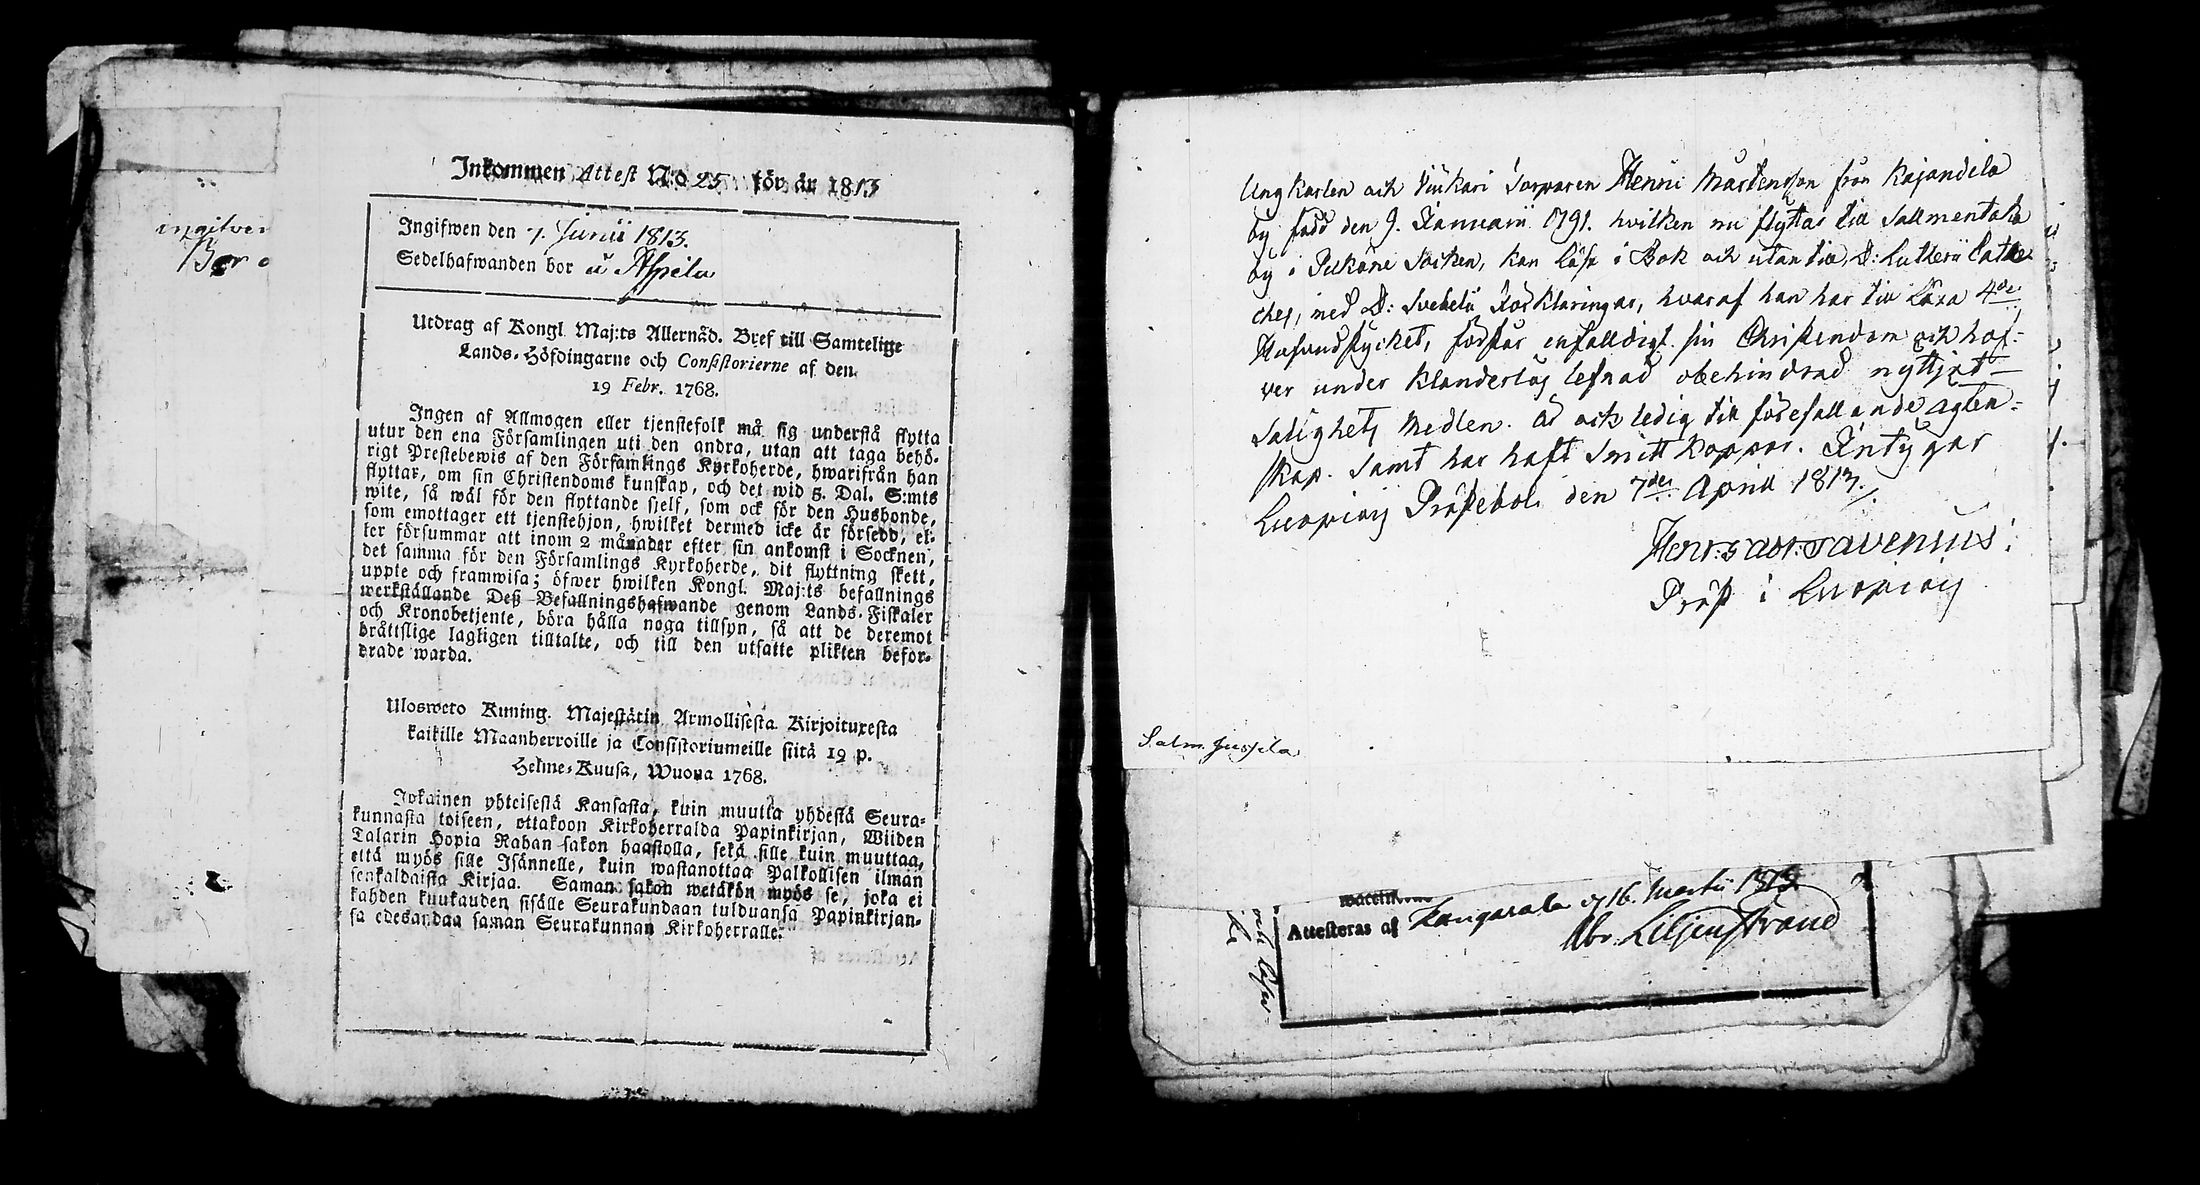 ingifven
Bor
Inkommen Attest N:o 25 för år 1813
Ingifwen den 7. Junii 1813.
Sedelhafwanden bor å Aspila
Utdrag af Kongl. Maj:ts Allernåd. Bref till Samtelige
Lands-Höfdingarne och Consistorierne af den
19 Febr. 1768.
Ingen af Allmogen eller tjenstefolk må sig understå flytta
utur den ena Församlingen uti den andra, utan att taga behö-
rigt Prestebewis af den Församlings Kyrkoherde, hwarifrån han
flyttar, om sin Christendoms kunskap, och det wid 5. Dal. S:mts
wite, så wäl för den flyttande sjelf, som ock för den Husbonde,
som emottager ett tjenstehjon, hwilket dermed icke är försedd, el-
ler försummar att inom 2 månader efter sin ankomst i Socknen,
det samma för den Församlings Kyrkoherde, dit flyttning skett,
uppte och framwisa; öfwer hwilken Kongl. Maj:ts befallnings
werkställande Deß Befallningshafwande genom Lands-Fiskaler
och Kronobetjente, böra hålla noga tillsyn, så att de deremot
bråttslige lagligen tilltalte, och till den utsatte plikten befor-
drade warda.
Ulosweto Kuning. Majestätin Armollisesta Kirjoituxesta
kaikille Maanherroille ja Consistoriumeille siitä 19 p.
Helme-Kuusa, Wuona 1768.
Jokainen yhteisestä Kansasta, kuin muutta yhdestä Seura-
kunnasta toiseen, ottakoon Kirkoherralda Papinkirjan, Wiiden
Talarin Hopia Rahan sakon haastolla, sekä sille kuin muuttaa,
että myös sille Isännelle, kuin wastanottaa Palkollisen ilman
senkaldaista Kirjaa. Saman sakon wetäkön myös se, joka ei
kahden kuukauden sisälle Seurakundaan tulduansa Papinkirjan-
sa edesandaa saman Seurakunnan Kirkoherralle.
Ungkarlen och Torparen Henric Mårtensson från Kajandila
by född den 9. Januarii 1791. hvilken nu flyttar till Sallmentaka
by i Pelkäne Socken, kan läsa i Bok och utan till D: Lutherii Cathe-
ches, med D: Svebelii Förklaringar, hvaraf han har till Läxa 4de
Hufvudstycket, förstår enfalldigt sin Christendom och haf-
ver under klanderlös lefnad obehindrad nyttjat
Salighets Medlen. Är ock ledig till förefallande äqten-
skap. Samt har haft Smittkoppor. Intygar
Luopiois Prästebol den 7de April 1813.
Henr: Gabr: Tavenius.
Präst i Luopiois
Salm. Jussila
Attesteras af Kangasala d 16. Martii 1813
Abr. Liljenstrand
och läser